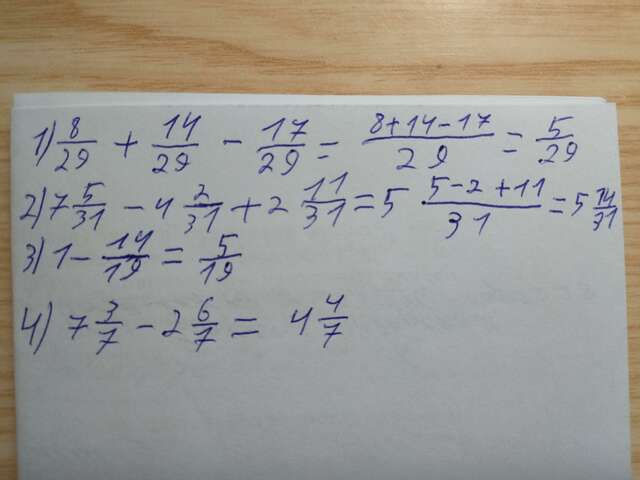 1) 8/29 + 14/29 - 17/29 = 8+14-17/29 = 5/29
2) 7 5/31 - 4 2/31 + 2 11/31 = 5 5-2+11/31 = 5 14/31
3) 1 - 14/19 = 5/19
4) 7 3/7 - 2 6/7 = 4 4/7